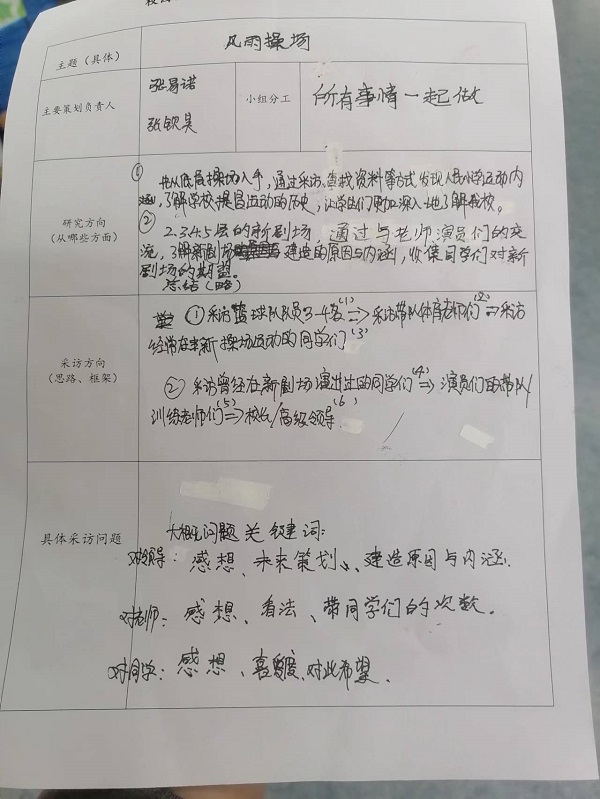 主题（具体）
风雨操场
主要策划负责人
张易诺
张钦昊
小组分工
所有事情一起做
研究方向
（从哪些方面）
① 先从底层操场入手，通过采访、查找资料等方式发现人民小学运动内
涵，了解学校提昌运动的历史，让学生们更加深入地了解我校。
② 2.3.4.5层的新剧场，通过与老师演员们的交
流，了解新剧场建造的原因与内涵，收集同学们对新
剧场的期望。
总结（略）
采访方向
（思路、框架）
①采访篮球队队员3-4名(1)⇒采访带队体育老师们(2)⇒采访
经常在新操场运动的同学们(3)
②采访曾经在新剧场演出过的同学们(4)⇒演员们的带队
训练老师们(5)⇒校长/高级领导(6)
具体采访问题
大概问题关键词：
对领导：感想、未来策划、建造原因与内涵.
对老师：感想、看法、带同学们的次数。
对同学：感想、喜爱度、对此希望.